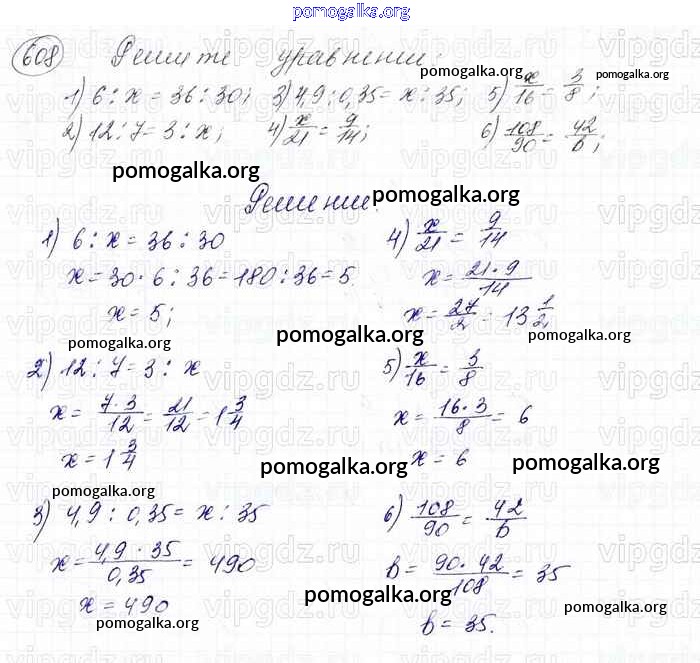 pomogalka.org
608 Решите уравнения:
1) 6 : x = 36 : 30; 3) 4,9 : 0,35 = x : 35; 5) x/16 = 3/8;
pomogalka.org pomogalka.org
2) 12 : 7 = 3 : x; 4) x/21 = 9/14; 6) 108/90 = 42/b;
pomogalka.org
Решение. pomogalka.org
1) 6 : x = 36 : 30
x = 30 · 6 : 36 = 180 : 36 = 5.
x = 5;
pomogalka.org
2) 12 : 7 = 3 : x
x = 7·3/12 = 21/12 = 1 3/4
x = 1 3/4
pomogalka.org
3) 4,9 : 0,35 = x : 35
x = 4,9 · 35/0,35 = 490
x = 490
pomogalka.org
4) x/21 = 9/14
x = 21·9/14
x = 27/2 = 13 1/2
pomogalka.org
pomogalka.org
5) x/16 = 3/8
x = 16·3/8 = 6
x = 6
pomogalka.org
pomogalka.org
6) 108/90 = 42/b
b = 90·42/108 = 35
pomogalka.org
pomogalka.org
b = 35.
vipgdz.ru